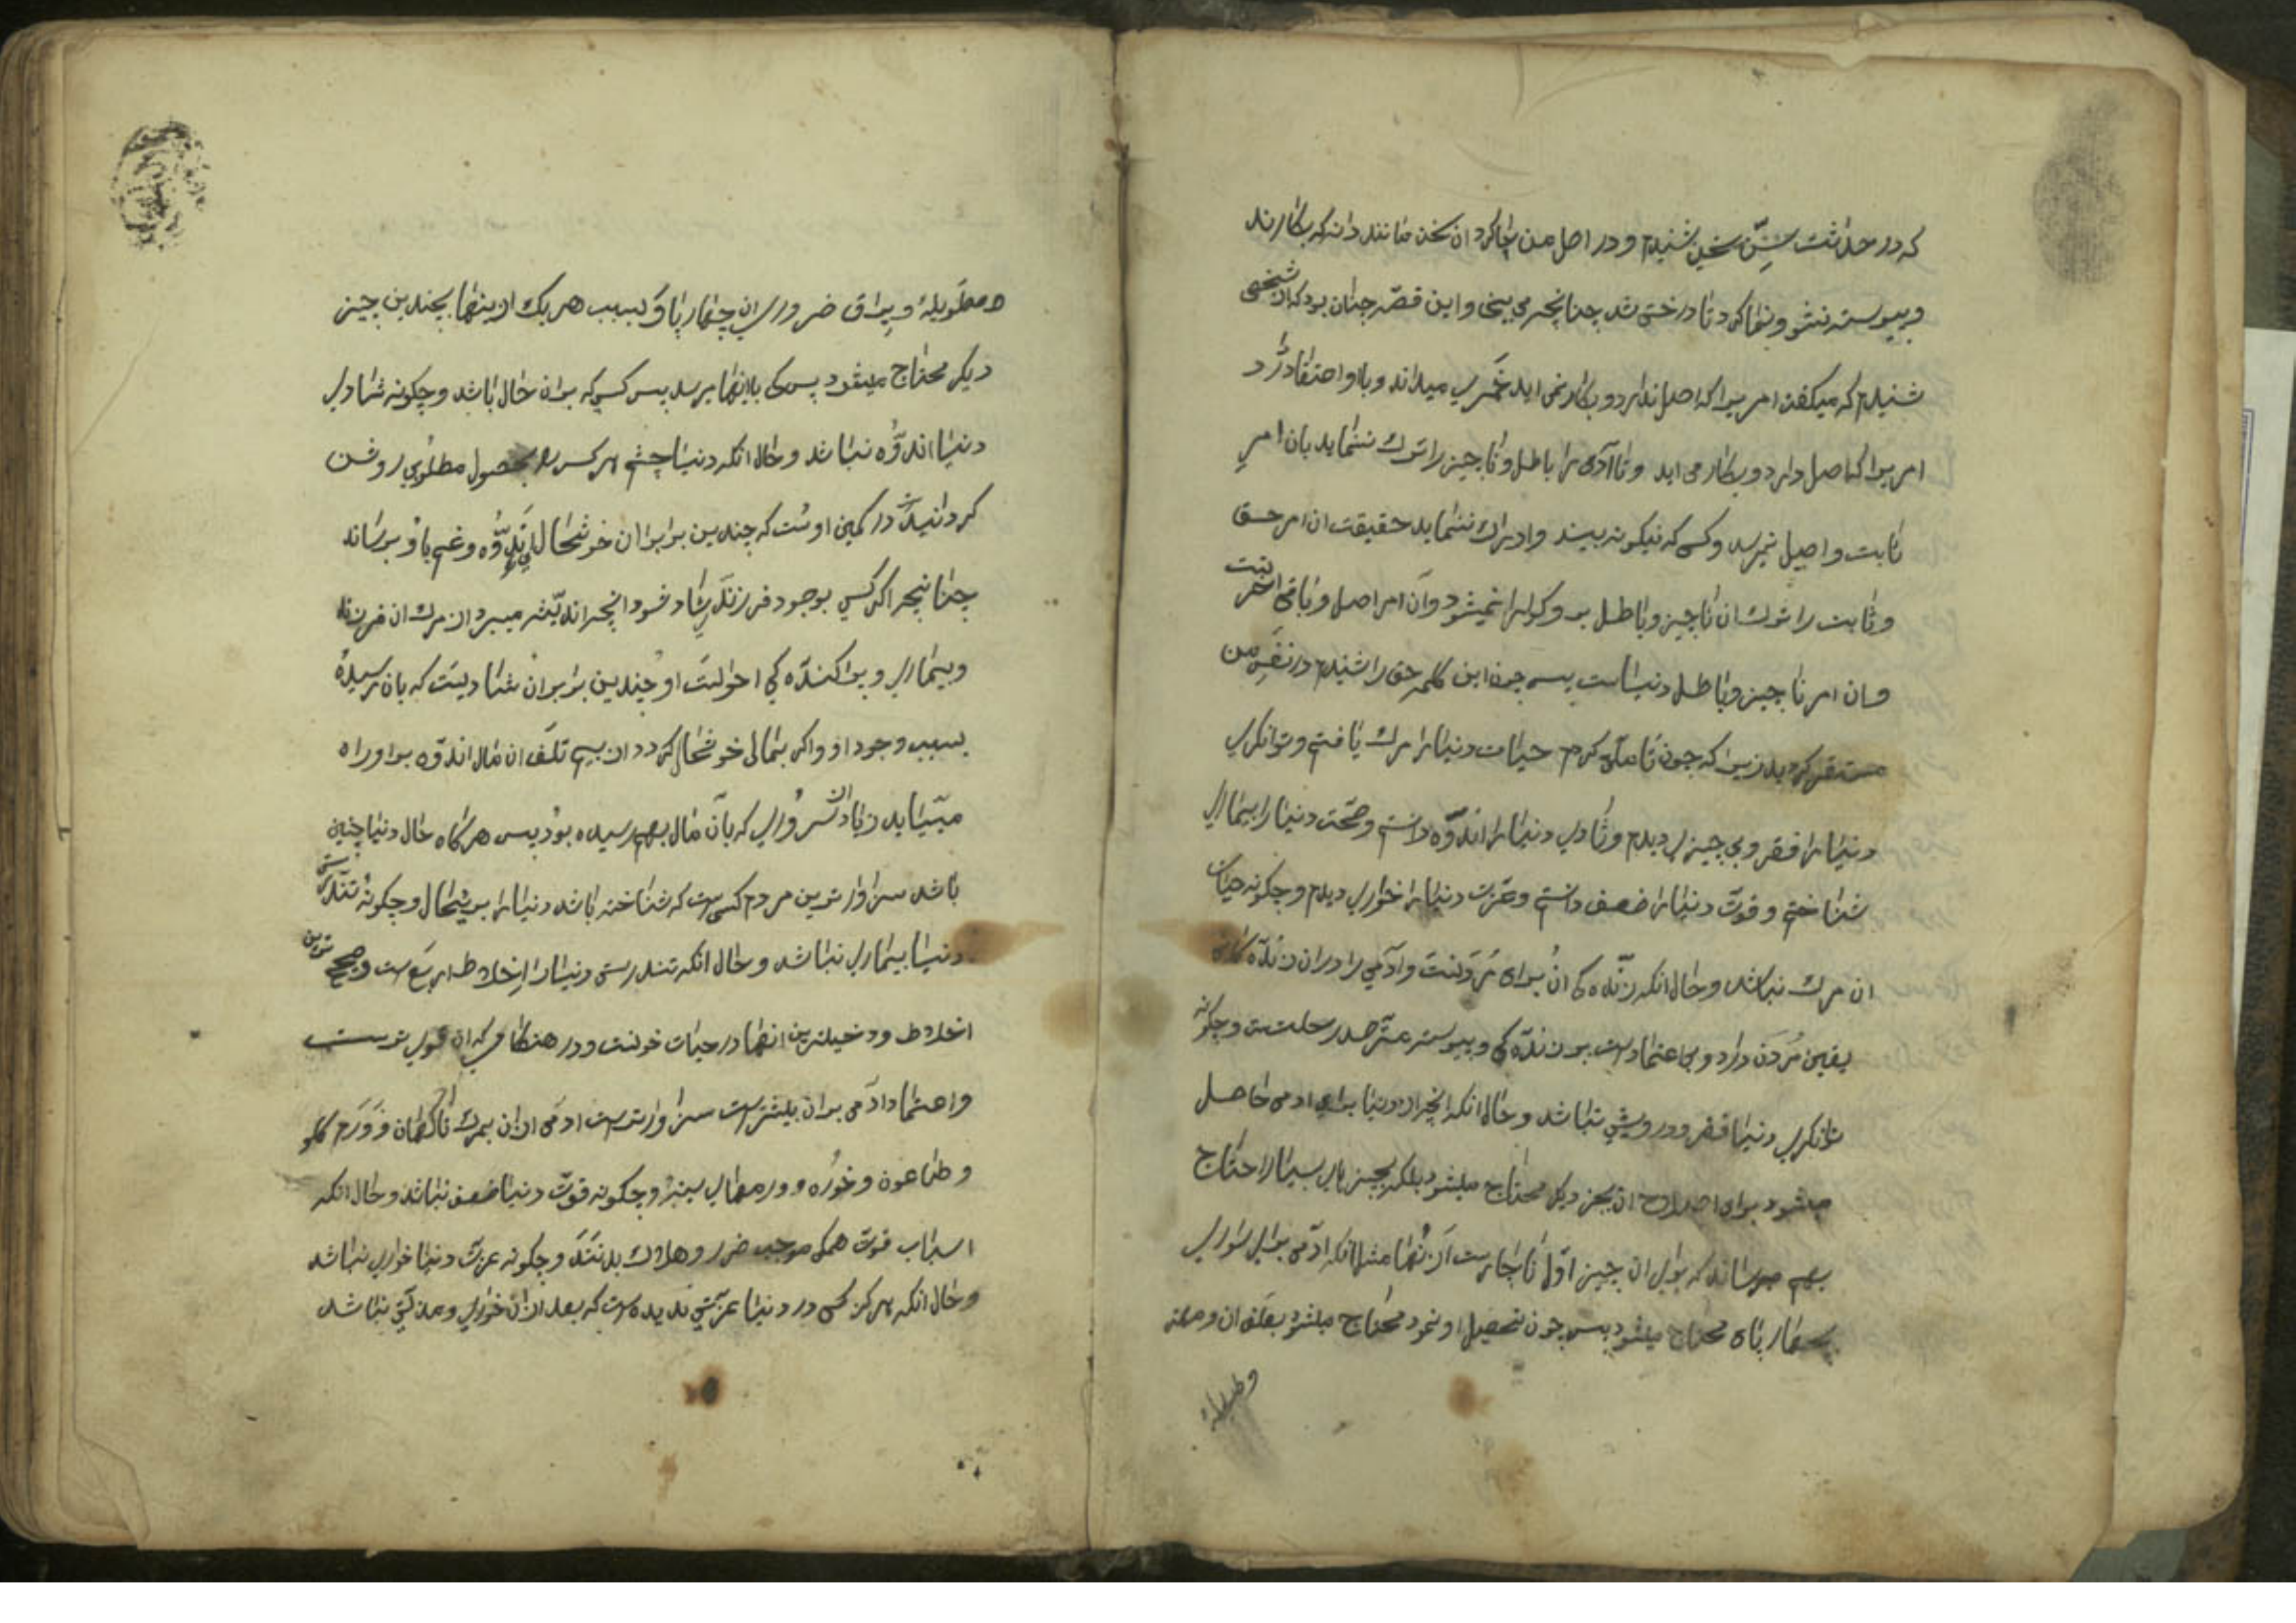 که در حداثت سنّ سخنی شنیدم و در اصل من جا کرد ان سخن مانند دانه که بکارند
و پیوسته نشو و نما کرد تا درختی شد چنانچه می بینی و این قصه چنان بود که از شخصی
شنیدم که میکفت امریرا که اصل ندارد و بکار نمی اید چیزی میداند و باو اعتقاد دارد
امریرا که اصل دارد و بکار می اید و تا آدمی را باطل و ناچیز را ترک ننماید بان امر
ثابت و اصیل نمیرسد و کسی که نیکو نه بیند و ادراک ننماید حقیقت ان امر حق
و ثابت را ترک ان ناچیز و باطل بر او کوارا نمیشود و آن امر اصل و باقی اخرتست
و ان امر ناچیز و باطل دنیاست پس چون این کلمه حق را شنیدم در نفس من
مستقر کردید زیرا که چون تامل کردم حیات دنیا را مرک یافتم و توانکری
دنیا را فقر و بی چیزی دیدم و شادی دنیا را اندوه دانستم و صحت دنیا را بیماری
شناختم و قوت دنیا را ضعف دانستم و عزت دنیا را خواری دیدم و چکونه حیات
ان مرک نباشد و حال انکه زنده کی ان برای مردنست و آدمی را در ان زنده کانی
یقین مردن دارد و بی اعتمادست بر زنده کی و پیوسته مترصد رحلتست و چکونه
توانکری دنیا فقر و درویشی نباشد و حال انکه انچه از دنیا برای ادمی حاصل
میشود برای اصلاح ان بچیز دیکر محتاج میشود بلکه بچیزهای بسیار احتیاج
بهم میرساند که برای ان چیز اول ناچارست از انها مثلا انکه ادمی برای سواری
بچهار پای محتاج میشود پس چون تحصیل او نمود محتاج میشود بعلف ان و مهتر
و طویله
و طویله و یراق ضروری ان چهار پا و بسبب هر یک از اینها بچندین چیز
دیکر محتاج میشود پس کی بانتها میرسد پس کسی که بران حال باشد و چکونه شادی
دنیا اندوه نباشد و حال انکه دنیا چشم هر کس را بحصول مطلوبی روشن
کردانید در کمین اوست که چندین برابر ان خوشحالی اندوه و غم باو برساند
چنانچه اکر کسی بوجود فرزند شاد شود انچه اندیشه میبرد از مرک ان فرزند
و بیماری و پراکنده کی احوالت او چندین برابر ان شادیست که بان رسیده
بسبب وجود او و اکر بمالی خوشحال کردد از بیم تلف ان مال اندوه بر او راه
مییابد زیاده از ان سروری که بآن مال بهم رسیده بود پس هرکاه حال دنیا چنین
باشد سزاوارترین مردم کسی است که شناخته باشد دنیا را بریشحال و چکونه تندرستی
دنیا بیماری نباشد و حال انکه تندرستی دنیا از اخلاط اربع است و صحیح ترین
اخلاط و دخیلترین انها در حیات خونست و در هنکامی که ان قوی ترست
و اعتماد ادمی بران بیشترست سزاوارترست ادمی از ان بمرک ناکهان و ورم کلو
و طاعون و خوره و ورمهای سینه و چکونه قوت دنیا ضعف نباشد و حال انکه
اسباب قوت همکی موجب ضرر و هلاک بدنند و چکونه عزت دنیا خواری نباشد
و حال انکه هرکز کسی در دنیا عزتی ندیده است که بعد از ان خواری و مذلتی نباشد